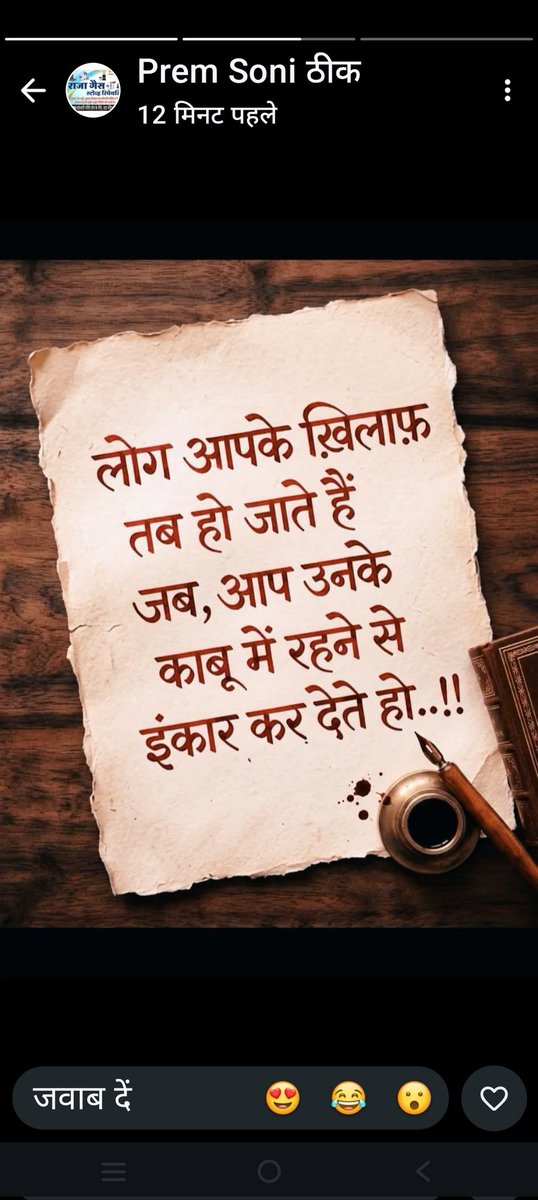 Prem Soni ठीक
12 मिनट पहले
लोग आपके ख़िलाफ़
तब हो जाते हैं
जब, आप उनके
काबू में रहने से
इंकार कर देते हो..!!
जवाब दें